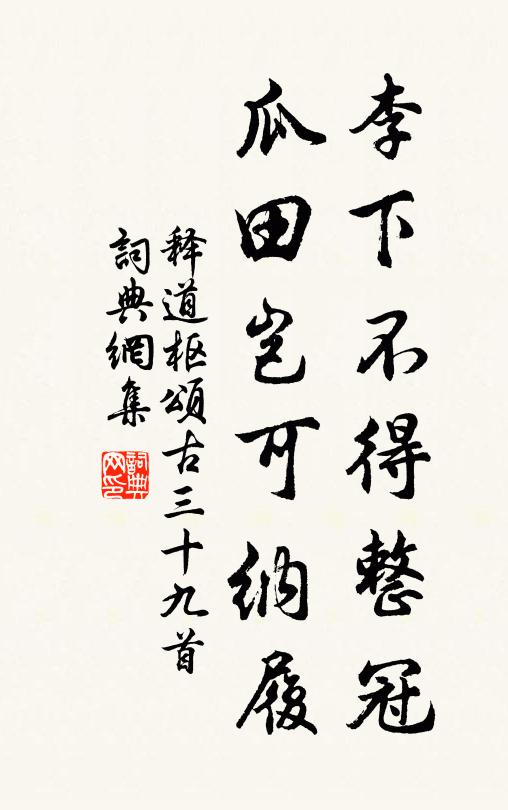 李下不得整冠
瓜田岂可纳履
释道枢颂古三十九首
詞典網集
詞典网印